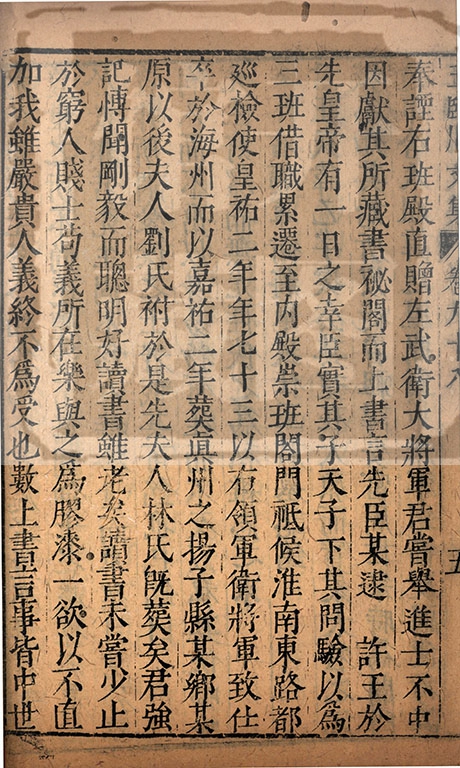 王臨川文集 卷九十六 五
奉諱右班殿直贈左武衛大將軍君嘗舉進士不中
因獻其所藏書祕閣而上書言先臣某逮 許王於
先皇帝有一日之幸臣實其子天子下其問驗以爲
三班借職累遷至內殿崇班閤門祗候淮南東路都
廵檢使皇祐二年年七十三以右領軍衛將軍致仕
卒於海州而以嘉祐二年葬眞州之揚子縣某鄉某
原以後夫人劉氏祔於是先夫人林氏旣葬矣君強
記慱聞剛毅而聰明好讀書雖老矣讀書未嘗少止
於窮人賤士苟義所在樂與之爲膠漆一欲以不直
加我雖嚴貴人義終不爲受也數上書言事皆中世